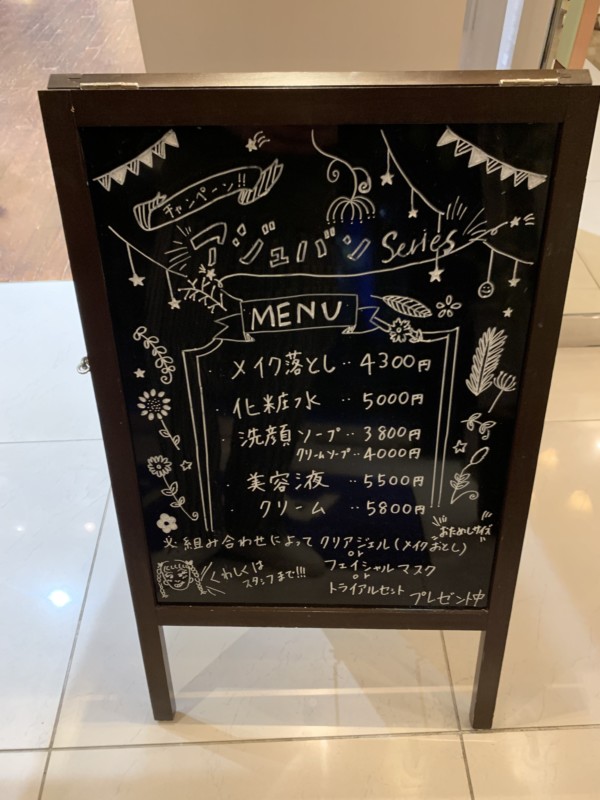 キャンペーン!!
アジュバン Series
MENU
・メイク落とし‥4300円
・化粧水‥5000円
・洗顔 ソープ‥3800円
クリームソープ‥4000円
・美容液‥5500円
・クリーム‥5800円
"おためしサイズ"
※組み合わせによって クリアジェル(メイクおとし)
or
フェイシャルマスク
or
トライアルセット プレゼント中
くわしくは
スタッフまで!!!